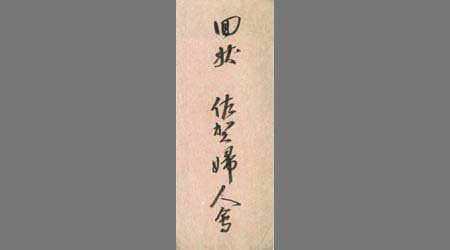 回状 佐賀婦人会